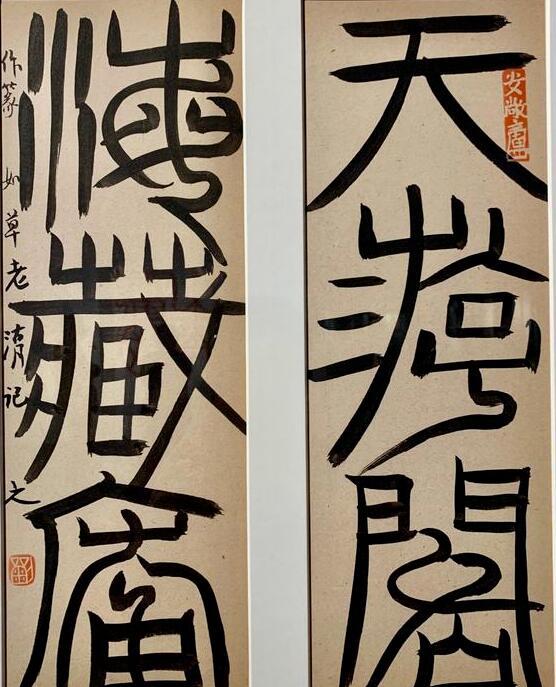 天游閣
海藏廬
作篆如草老清記之